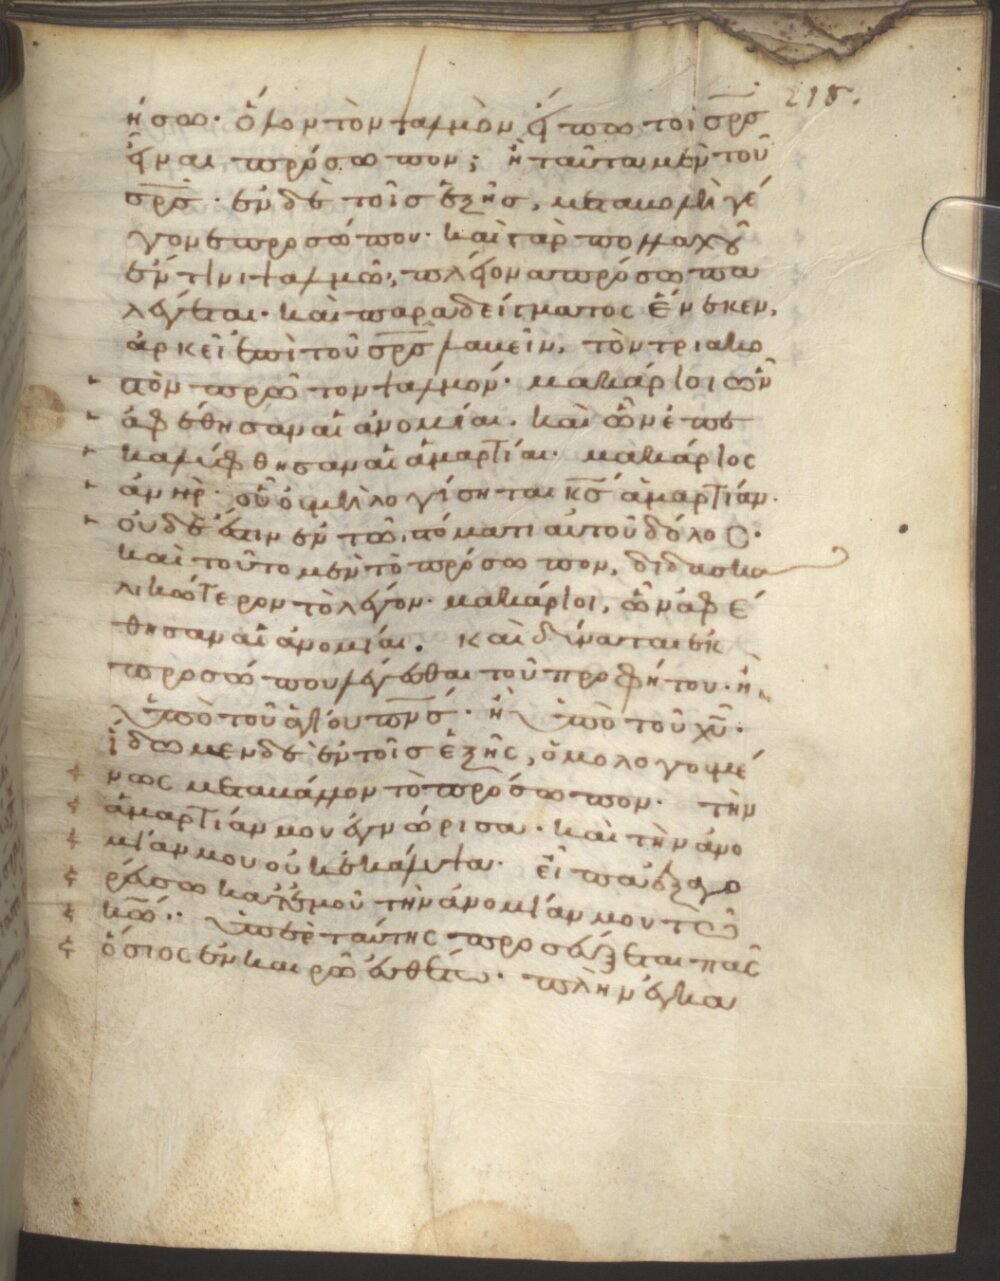 ήσω· ὅλον τὸν ψαλμὸν εἴπω τοῦ σρ̅σ̅
εἶναι πρόσωπον; ἢ ταῦτα μὲν τοῦ
σρ̅σ̅· ἐν δὲ τοῖς ἑξῆς, μεταβολὴ γέ
γονε προσώπου· καὶ γὰρ πολλαχοῦ
ἔν τινι ψαλμῶ, πλείονα πρόσωπα
λέγεται· καὶ παραδείγματος ἕνεκεν,
ἀρκεῖ ἐπὶ τοῦ σρ̅σ̅ λαβεῖν, τὸν τριακο
στὸν πρῶτον ψαλμόν· μακάριοι ὧν
ἀφέθησαν αἱ ἀνομίαι. καὶ ὧν ἐπε
καλύφθησαν αἱ ἁμαρτίαι· μακάριος
ἀνήρ· οὗ οὐ μὴ λογίσηται κ̅σ̅ ἁμαρτίαν·
οὐδὲ ἔστιν ἐν τῶ στόματι αὐτοῦ δόλος·
καὶ τοῦτο μὲν τὸ πρόσωπον, διδασκα
λικώτερον τὸ λέγον· μακάριοι, ὧν ἀφέ
θησαν αἱ ἀνομίαι. καὶ δύναται ἐκ
προσώπου λέγεσθαι τοῦ προφήτου· ἢ
ὑπὸ τοῦ ἁγίου π̅ν̅σ̅· ἢ ὑπὸ τοῦ χ̅υ̅·
ἴδωμεν δὲ ἐν τοῖς ἑξῆς, ὁμολογουμέ
νως μεταβάλλον τὸ πρόσωπον· τὴν
ἁμαρτίαν μου ἐγνώρισα· καὶ τὴν ἀνο
μίαν μου οὐκ ἐκάλυψα· εἶπα ἐξαγο
ρεύσω κατ' ἐμοῦ τὴν ἀνομίαν μου τῶ
κ̅ω̅· ὑπὲρ ταύτης προσεύξεται πᾶς
ὅσιος ἐν καιρῶ εὐθέτω· πλὴν ἐν κα